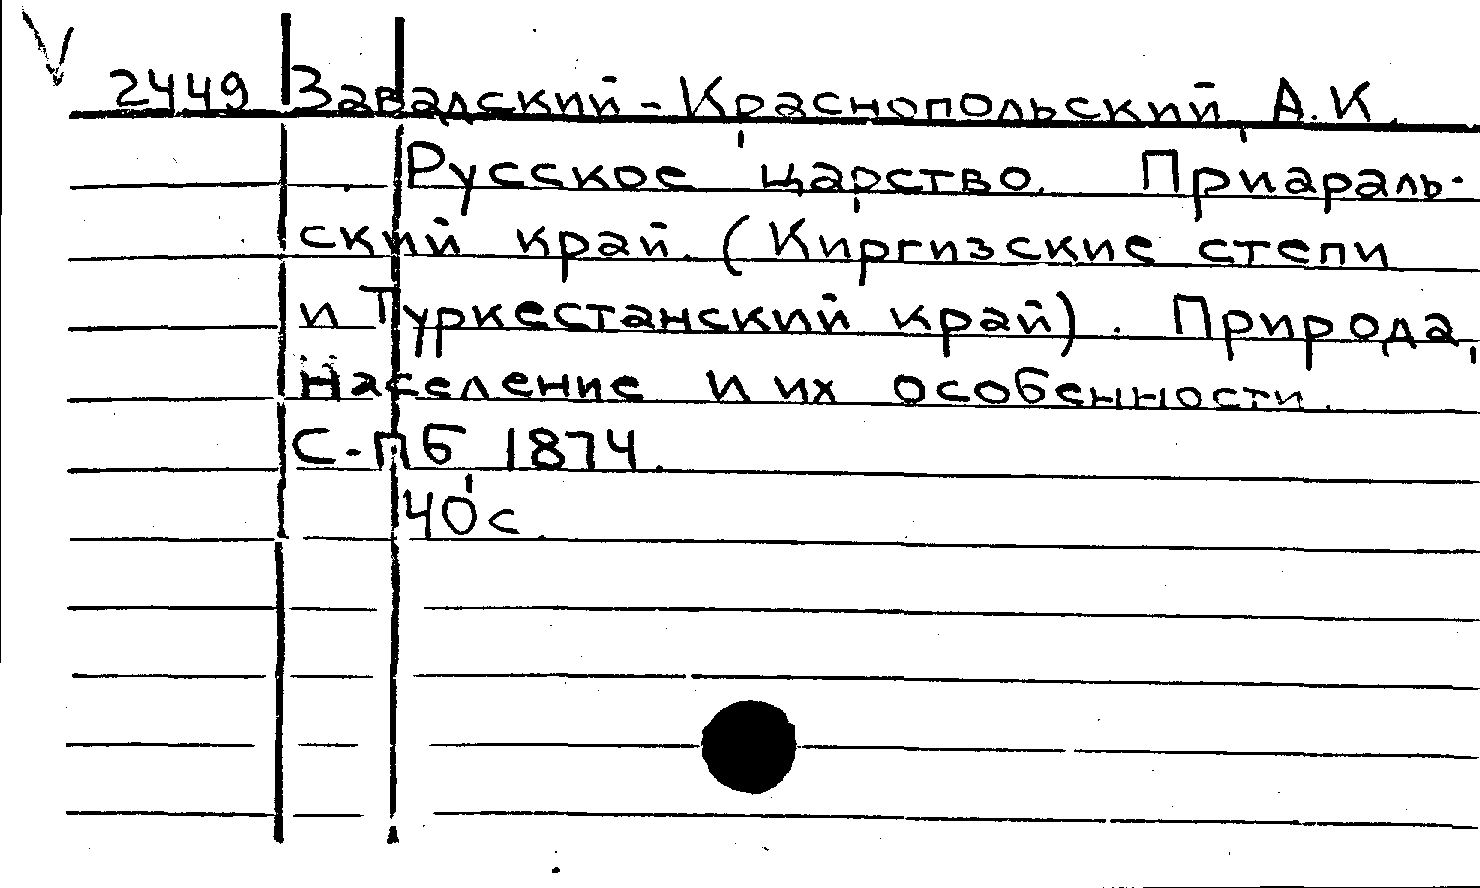 V
2449 Завадский-Краснопольский, А.К.
Русское царство. Приараль-
ский край. (Киргизские степи
и Туркестанский край). Природа,
население и их особенности.
С.-Пб, 1874.
40 с.